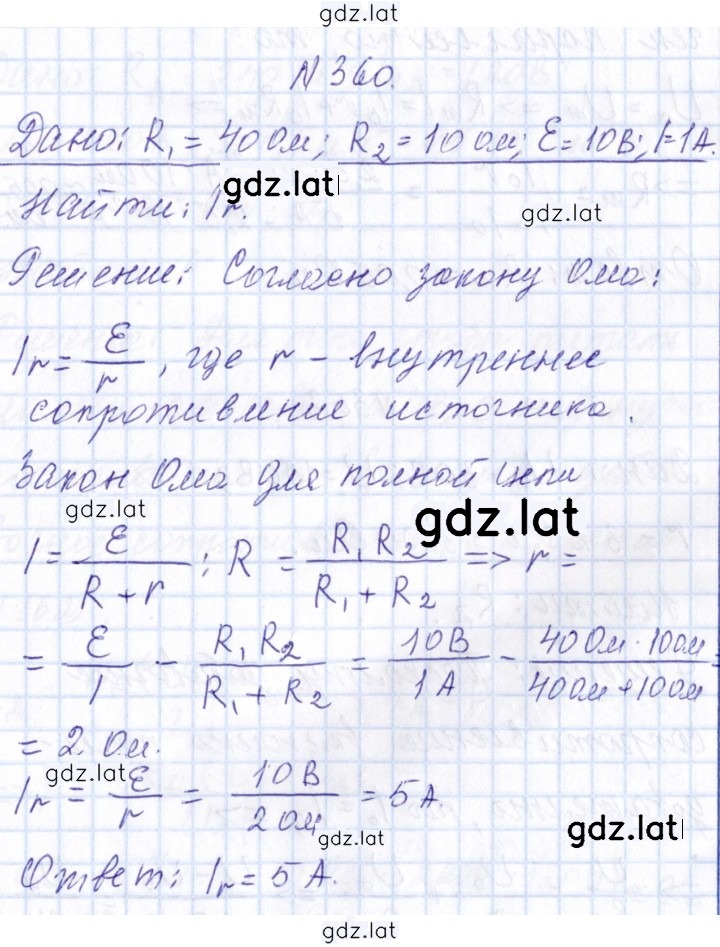 gdz.lat
N 360.
Дано: R₁ = 40 Ом; R₂ = 10 Ом; Ɛ = 10 В; I = 1 А.
gdz.lat
Найти: Iг.
gdz.lat
Решение: Согласно закону Ома:
Ir = Ɛ/r, где r - внутреннее
сопротивление источника.
Закон Ома для полной цепи
gdz.lat
gdz.lat
I = Ɛ/(R + r); R = R₁R₂/(R₁ + R₂) => r =
= Ɛ/I - R₁R₂/(R₁ + R₂) = 10 В/1 А - 40 Ом · 10 Ом/(40 Ом + 10 Ом) =
= 2 Ом.
gdz.lat
Ir = Ɛ/r = 10 В/2 Ом = 5 А.
gdz.lat
gdz.lat
Ответ: Ir = 5 А.
gdz.lat